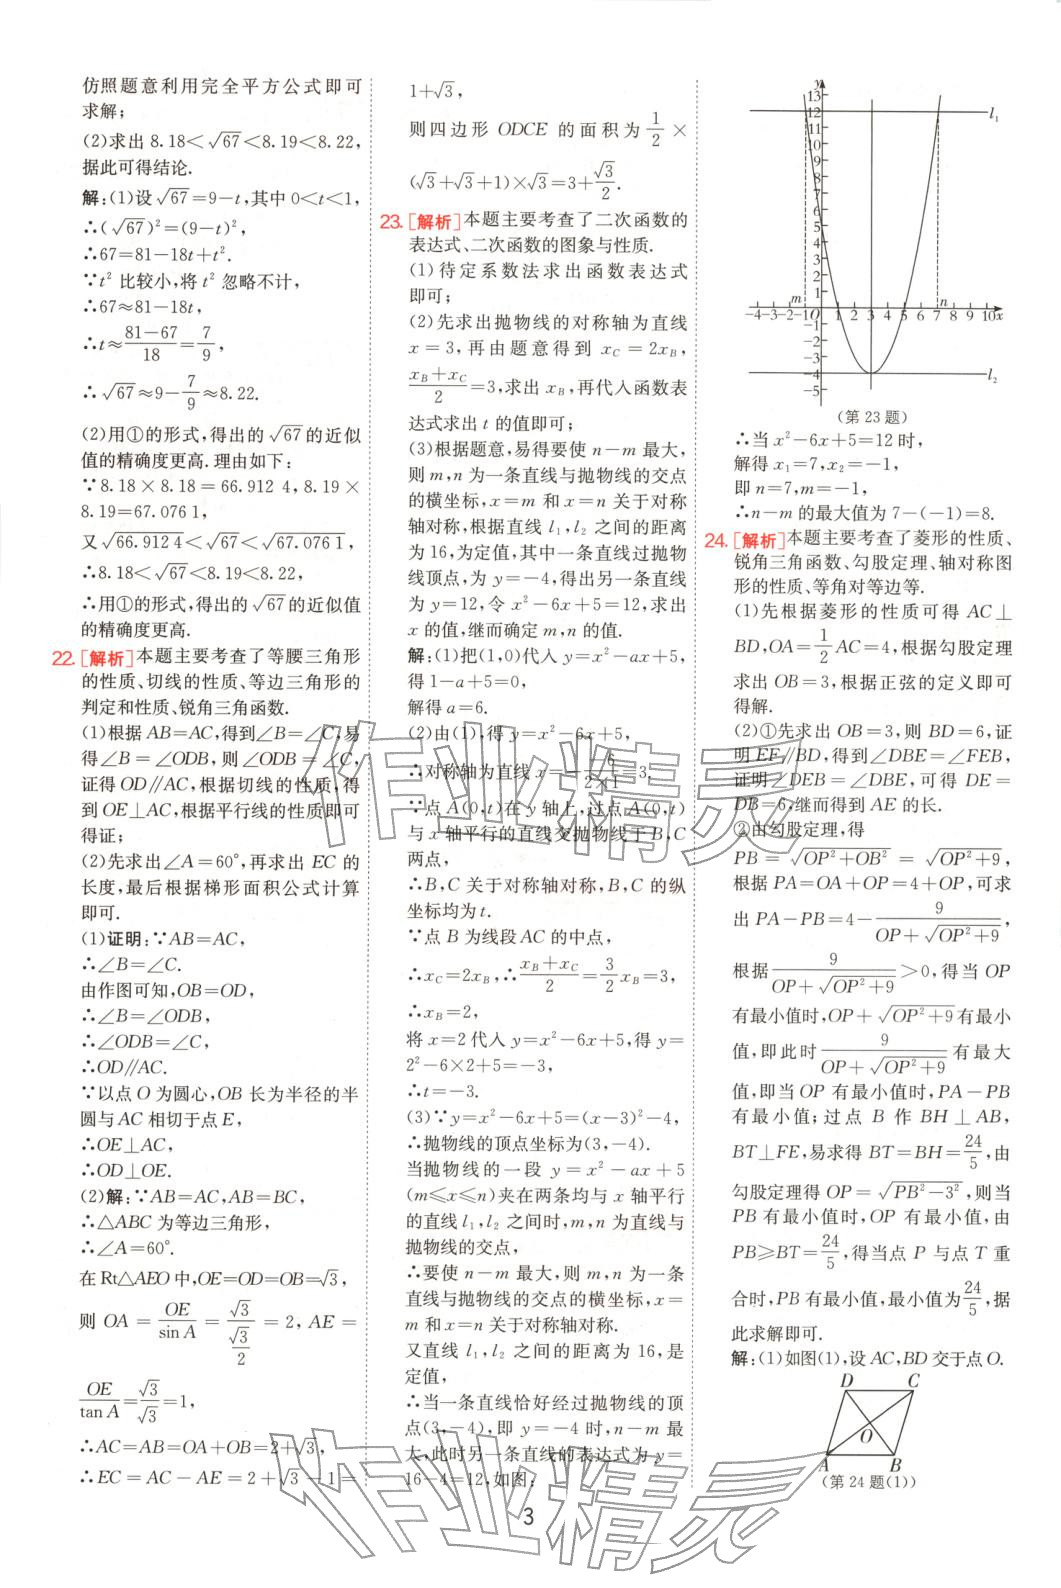 仿照题意利用完全平方公式即可
求解；
(2)求出 8.18<√67<8.19<8.22,
据此可得结论.
解:(1)设√67=9-t,其中 0<t<1,
∴(√67)²=(9-t)²,
∴67=81-18t+t².
∵t² 比较小,将 t² 忽略不计,
∴67≈81-18t,
∴t≈(81-67)/18=7/9,
∴√67≈9-7/9≈8.22.
(2)用①的形式,得出的√67的近似
值的精确度更高.理由如下:
∵8.18×8.18=66.912 4,8.19×
8.19=67.076 1,
又√66.912 4<√67<√67.076 1,
∴8.18<√67<8.19<8.22,
∴用①的形式,得出的√67的近似值
的精确度更高.
22.[解析]本题主要考查了等腰三角形
的性质、切线的性质、等边三角形的
判定和性质、锐角三角函数.
(1)根据 AB=AC,得到∠B=∠C,易
得∠B=∠ODB,则∠ODB=∠C,
证得 OD∥AC,根据切线的性质,得
到 OE⊥AC,根据平行线的性质即可
得证；
(2)先求出∠A=60°,再求出 EC 的
长度,最后根据梯形面积公式计算
即可.
(1)证明:∵AB=AC,
∴∠B=∠C.
由作图可知,OB=OD,
∴∠B=∠ODB,
∴∠ODB=∠C,
∴OD∥AC.
∵以点 O 为圆心,OB 长为半径的半
圆与 AC 相切于点 E,
∴OE⊥AC,
∴OD⊥OE.
(2)解:∵AB=AC,AB=BC,
∴△ABC 为等边三角形,
∴∠A=60°.
在 Rt△AEO 中,OE=OD=OB=√3,
则 OA=OE/sin A=√3/(√3/2)=2,AE=
OE/tan A=√3/√3=1,
∴AC=AB=OA+OB=2+√3,
∴EC=AC-AE=2+√3-1=
1+√3,
则四边形 ODCE 的面积为 1/2×
(√3+√3+1)×√3=3+√3/2.
23.[解析]本题主要考查了二次函数的
表达式、二次函数的图象与性质.
(1)待定系数法求出函数表达式
即可；
(2)先求出抛物线的对称轴为直线
x=3,再由题意得到 x_C=2x_B,
(x_B+x_C)/2=3,求出 x_B,再代入函数表
达式求出 t 的值即可；
(3)根据题意,易得要使 n-m 最大,
则 m,n 为一条直线与抛物线的交点
的横坐标,x=m 和 x=n 关于对称
轴对称,根据直线 l₁,l₂ 之间的距离
为 16,为定值,其中一条直线过抛物
线顶点,为 y=-4,得出另一条直线
为 y=12,令 x²-6x+5=12,求出
x 的值,继而确定 m,n 的值.
解:(1)把(1,0)代入 y=x²-ax+5,
得 1-a+5=0,
解得 a=6.
(2)由(1),得 y=x²-6x+5,
∴对称轴为直线 x=-(-6)/(2×1)=3.
∵点 A(0,t)在 y 轴上,过点 A(0,t)
与 x 轴平行的直线交抛物线于 B,C
两点,
∴B,C 关于对称轴对称,B,C 的纵
坐标均为 t.
∵点 B 为线段 AC 的中点,
∴x_C=2x_B,∴(x_B+x_C)/2=3/2 x_B=3,
∴x_B=2,
将 x=2 代入 y=x²-6x+5,得 y=
2²-6×2+5=-3,
∴t=-3.
(3)∵y=x²-6x+5=(x-3)²-4,
∴抛物线的顶点坐标为(3,-4).
当抛物线的一段 y=x²-ax+5
(m≤x≤n)夹在两条均与 x 轴平行
的直线 l₁,l₂ 之间时,m,n 为直线与
抛物线的交点,
∴要使 n-m 最大,则 m,n 为一条
直线与抛物线的交点的横坐标,x=
m 和 x=n 关于对称轴对称.
又直线 l₁,l₂ 之间的距离为 16,是
定值,
∴当一条直线恰好经过抛物线的顶
点(3,-4),即 y=-4 时,n-m 最
大,此时另一条直线的表达式为 y=
16-4=12,如图:
y
13
12
11
10
9
8
7
6
5
4
3
2
1
-1
-2
-3
-4
-5
l₁
m
n
-4-3-2-1O 1 2 3 4 5 6 7 8 9 10x
l₂
(第 23 题)
∴当 x²-6x+5=12 时,
解得 x₁=7,x₂=-1,
即 n=7,m=-1,
∴n-m 的最大值为 7-(-1)=8.
24.[解析]本题主要考查了菱形的性质、
锐角三角函数、勾股定理、轴对称图
形的性质、等角对等边等.
(1)先根据菱形的性质可得 AC⊥
BD,OA=1/2 AC=4,根据勾股定理
求出 OB=3,根据正弦的定义即可
得解.
(2)①先求出 OB=3,则 BD=6,证
明 EF∥BD,得到∠DBE=∠FEB,
证明∠DEB=∠DBE,可得 DE=
DB=6,继而得到 AE 的长.
②由勾股定理,得
PB=√(OP²+OB²)=√(OP²+9),
根据 PA=OA+OP=4+OP,可求
出 PA-PB=4-9/(OP+√(OP²+9)),
根据 9/(OP+√(OP²+9))>0,得当 OP
有最小值时,OP+√(OP²+9)有最小
值,即此时 9/(OP+√(OP²+9)) 有最大
值,即当 OP 有最小值时,PA-PB
有最小值；过点 B 作 BH⊥AB,
BT⊥FE,易求得 BT=BH=24/5,由
勾股定理得 OP=√(PB²-3²),则当
PB 有最小值时,OP 有最小值,由
PB≥BT=24/5,得当点 P 与点 T 重
合时,PB 有最小值,最小值为 24/5,据
此求解即可.
解:(1)如图(1),设 AC,BD 交于点 O.
D
C
O
A
B
(第 24 题(1))
3
作业精灵
作业精灵